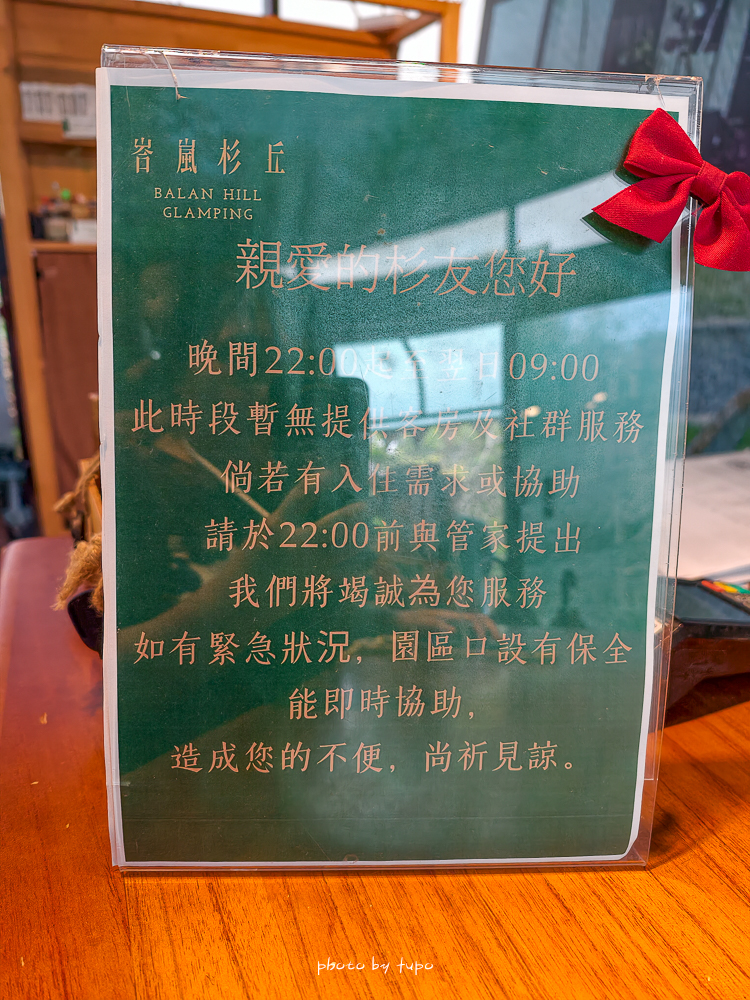 峇嵐杉丘
BALAN HILL
GLAMPING
親愛的杉友您好
晚間22:00起至翌日09:00
此時段暫無提供客房及社群服務
倘若有入住需求或協助
請於22:00前與管家提出
我們將竭誠為您服務
如有緊急狀況，園區口設有保全
能即時協助，
造成您的不便，尚祈見諒。
photo by tupo